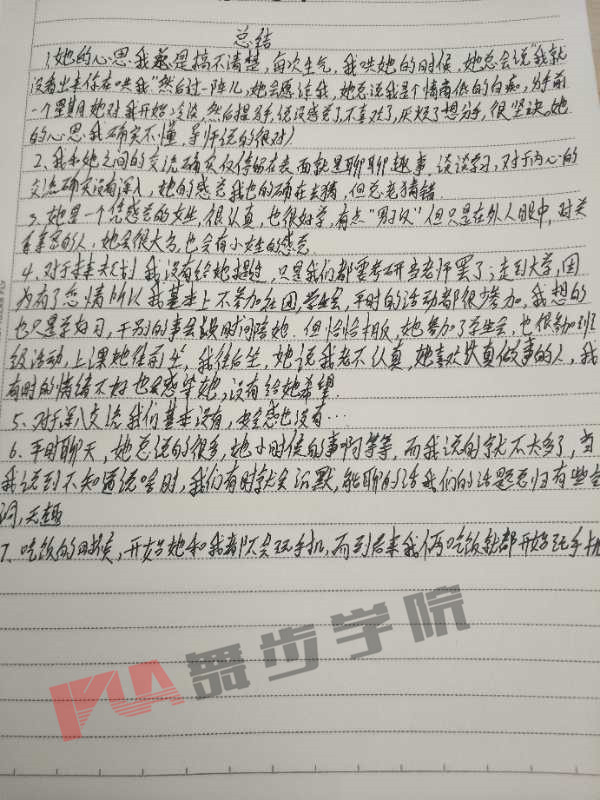 总结
1.她的心思我总是搞不清楚,每次生气,我哄她的时候,她总会说"我就
没看出来你在哄我"然后过一阵儿,她会原谅我,她总说我是个情商低的白痴,分手前
一个星期她对我开始冷淡,然后提分手,说没感觉了,不喜欢了,厌烦了想分手,很坚决,她
的心思我确实不懂,导师说的很对)
2、我和她之间的交流确实仅停留在表面就是聊聊趣事,谈谈学习,对于内心的
交流确实没有深入,她的感觉我也的确在去猜,但总老猜错.
3、她是一个凭感觉的女生,很认真,也很好学,有点"男子汉"但只是在外人眼中,对关
的人,她会很大方,也会有小女生的感觉
4、对于未来规划我没有给她提过,只是我们都要考研当老师罢了;走到大学,因
为有了恋情所以我基本上不参加社团,学生会,平时的活动都很少参加,我想的
也只是学习,干别的事会缺时间陪她.但恰恰相反,她参加了学生会,也积极参加班
级活动,上课她往前坐,我往后坐,她说我老不认真,她喜欢认真做事的人,我
有时的情绪不好也会感染她,没有给她希望.
5、对于深入交流我们基本没有,安全感也没有…
6、平时聊天,她总说的很多,她小时候的事啊等等,而我说的就不太多了,当
我说到不知道说啥时,我们有时就会沉默,能聊的话我们的话题总归有些空
洞,无趣
7、吃饭的时候,开始她和我都不会玩手机,而到后来我们吃饭就都开始玩手机
舞步学院